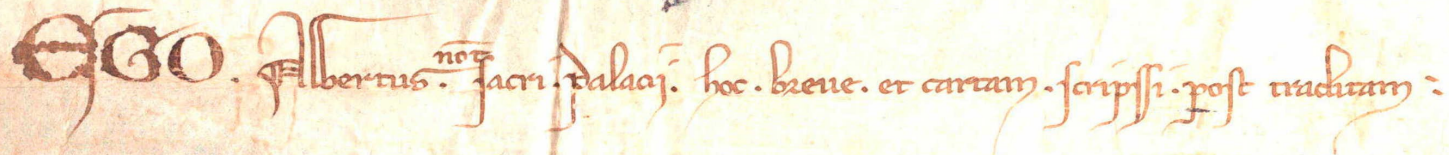 EGO . Albertus . not sacri . palacii . hoc . breue . et cartam . scripssi . post traditam :